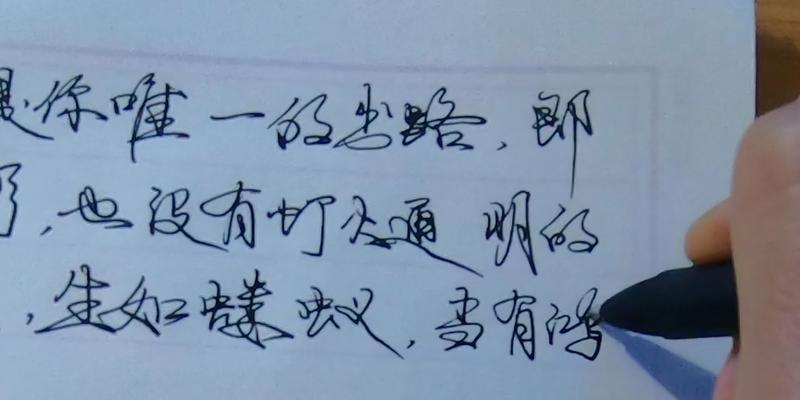 是你唯一的出路，即
了，也没有灯火通明的
，生如蝼蚁，当有鸿